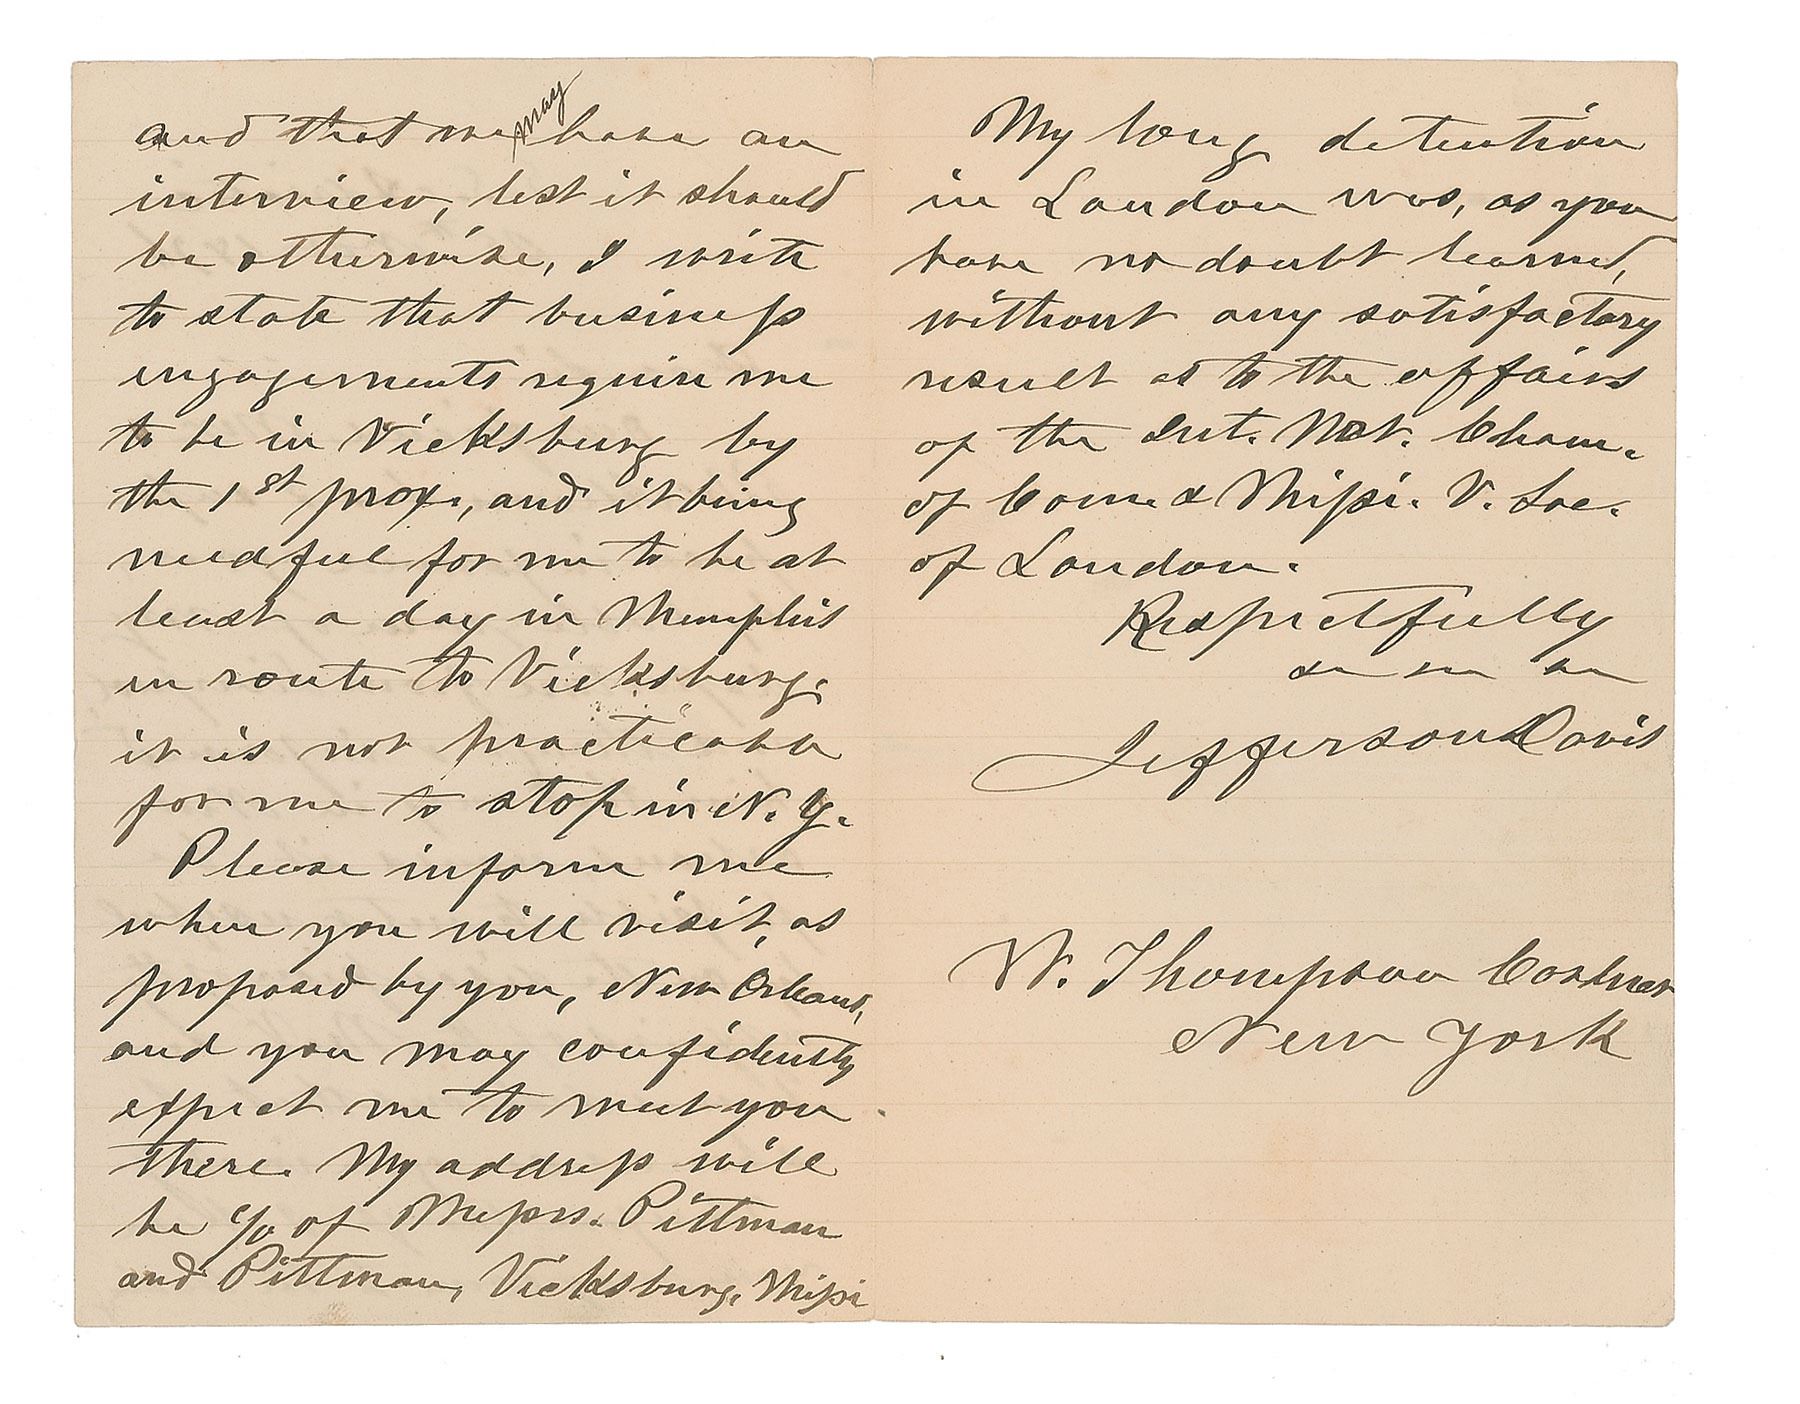 and that we may have an
interview, lest it should
be otherwise, I write
to state that business
engagements require me
to be in Vicksburg by
the 1st prox., and it being
needful for me to be at
least a day in Memphis
en route to Vicksburg.
it is not practicable
for me to stop in N. Y.
Please inform me
when you will visit, as
proposed by you, New Orleans,
and you may confidently
expect me to meet you
there. My address will
be c/o of Messrs. Pittman
and Pittman, Vicksburg, Missi
My long detention
in London was, as you
have no doubt learned,
without any satisfactory
result as to the affairs
of the Int. Nat. Cham.
of Com. & Missi. V. Soc.
of London.
Respectfully
Jefferson Davis
W. Thompson
New York